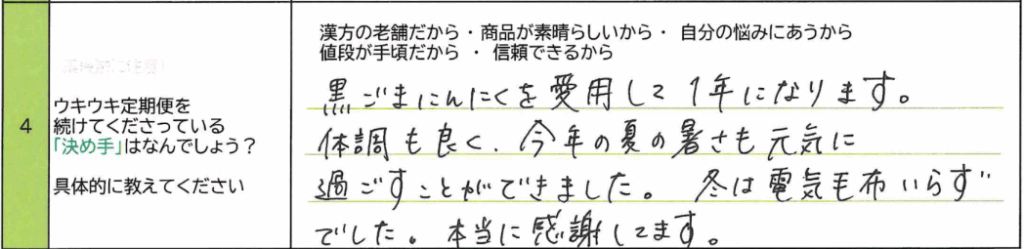 4
ウキウキ定期便を
続けてくださっている
「決め手」はなんでしょう？
具体的に教えてください
漢方の老舗だから・商品が素晴らしいから・ 自分の悩みにあうから
値段が手頃だから ・ 信頼できるから
黒ごまにんにくを愛用して1年になります。
体調も良く、今年の夏の暑さも元気に
過ごすことができました。 冬は電気毛布いらず
でした。本当に感謝してます。